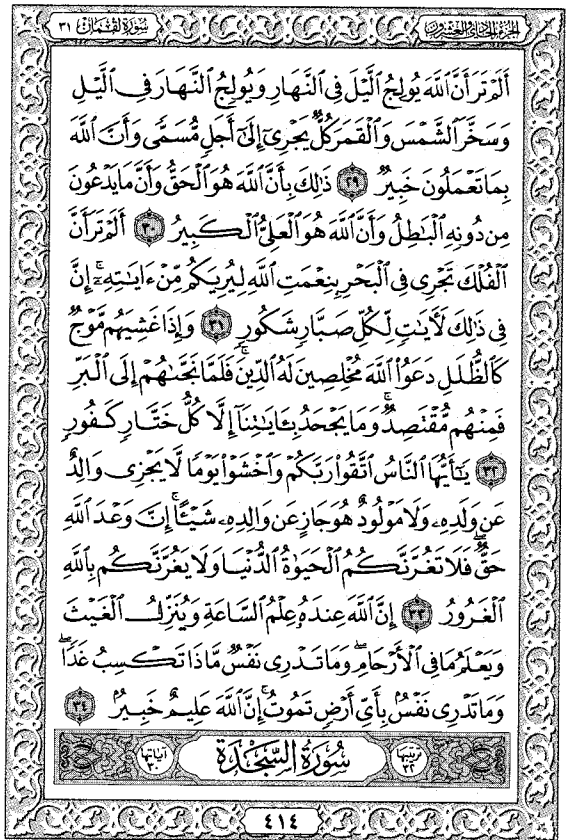 سورة لقمان ٣١
الجزء الحادي والعشرون
أَلَمْ تَرَ أَنَّ ٱللَّهَ يُولِجُ ٱلَّيْلَ فِى ٱلنَّهَارِ وَيُولِجُ ٱلنَّهَارَ فِى ٱلَّيْلِ
وَسَخَّرَ ٱلشَّمْسَ وَٱلْقَمَرَ كُلٌّ يَجْرِىٓ إِلَىٰٓ أَجَلٍ مُّسَمًّى وَأَنَّ ٱللَّهَ
بِمَا تَعْمَلُونَ خَبِيرٌ ٢٩ ذَٰلِكَ بِأَنَّ ٱللَّهَ هُوَ ٱلْحَقُّ وَأَنَّ مَا يَدْعُونَ
مِن دُونِهِ ٱلْبَٰطِلُ وَأَنَّ ٱللَّهَ هُوَ ٱلْعَلِىُّ ٱلْكَبِيرُ ٣٠ أَلَمْ تَرَ أَنَّ
ٱلْفُلْكَ تَجْرِى فِى ٱلْبَحْرِ بِنِعْمَتِ ٱللَّهِ لِيُرِيَكُم مِّنْ ءَايَٰتِهِۦٓ ۚ إِنَّ
فِى ذَٰلِكَ لَءَايَٰتٍ لِّكُلِّ صَبَّارٍ شَكُورٍ ٣١ وَإِذَا غَشِيَهُم مَّوْجٌ
كَٱلظُّلَلِ دَعَوُا۟ ٱللَّهَ مُخْلِصِينَ لَهُ ٱلدِّينَ فَلَمَّا نَجَّىٰهُمْ إِلَى ٱلْبَرِّ
فَمِنْهُم مُّقْتَصِدٌ ۚ وَمَا يَجْحَدُ بِـَٔايَٰتِنَآ إِلَّا كُلُّ خَتَّارٍ كَفُورٍ
٣٢ يَٰٓأَيُّهَا ٱلنَّاسُ ٱتَّقُوا۟ رَبَّكُمْ وَٱخْشَوْا۟ يَوْمًا لَّا يَجْزِى وَالِدٌ
عَن وَلَدِهِۦ وَلَا مَوْلُودٌ هُوَ جَازٍ عَن وَالِدِهِۦ شَيْـًٔا ۚ إِنَّ وَعْدَ ٱللَّهِ
حَقٌّ ۖ فَلَا تَغُرَّنَّكُمُ ٱلْحَيَوٰةُ ٱلدُّنْيَا وَلَا يَغُرَّنَّكُم بِٱللَّهِ
ٱلْغَرُورُ ٣٣ إِنَّ ٱللَّهَ عِندَهُۥ عِلْمُ ٱلسَّاعَةِ وَيُنَزِّلُ ٱلْغَيْثَ
وَيَعْلَمُ مَا فِى ٱلْأَرْحَامِ ۖ وَمَا تَدْرِى نَفْسٌ مَّاذَا تَكْسِبُ غَدًا ۖ
وَمَا تَدْرِى نَفْسٌۢ بِأَىِّ أَرْضٍ تَمُوتُ ۚ إِنَّ ٱللَّهَ عَلِيمٌ خَبِيرٌۢ ٣٤
ترتيبها ٣٢ سُورَةُ السَّجْدَةِ آياتها ٣٠
٤١٤